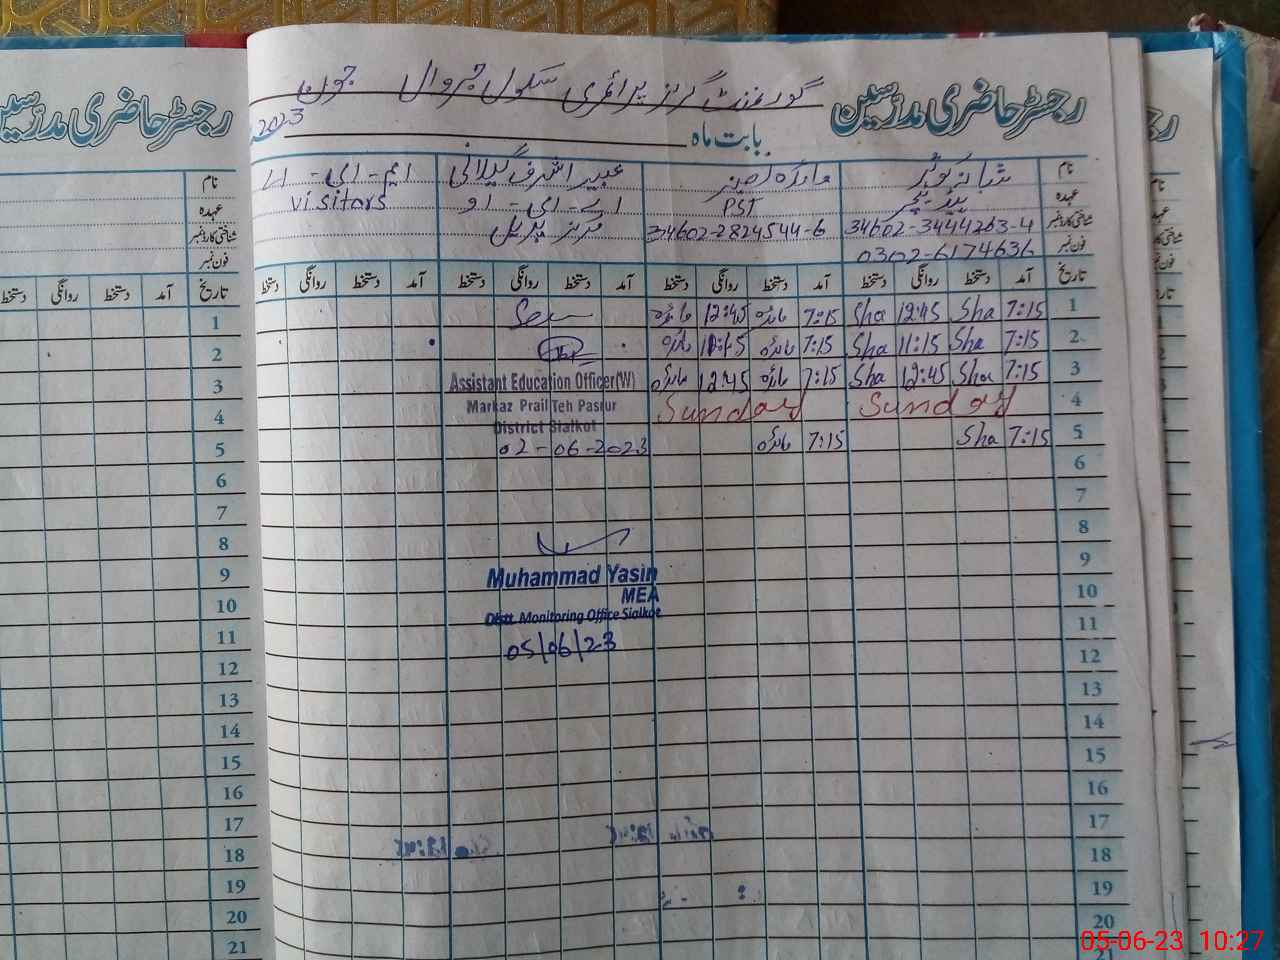 رجسٹر حاضری مدرسین
گورنمنٹ گرلز پرائمری سکول جروال جون
بابت ماہ 2023
نام شازیہ کوثر مائدہ امین عبیر اشرف گیلانی ایم-ای-اے
عہدہ ہیڈ ٹیچر PST اے-ای-او visitors
شناختی کارڈ نمبر 34602-3444263-4 34602-2824544-6 مرکز پریل
فون نمبر 0302-6174636
تاریخ آمد دستخط روانگی دستخط آمد دستخط روانگی دستخط آمد دستخط روانگی دستخط آمد دستخط روانگی دستخط
1 7:15 Sha 12:45 Sha 7:15 مائدہ 12:45 مائدہ
2 7:15 Sha 11:15 Sha 7:15 مائدہ 11:15 مائدہ
3 7:15 Sha 12:45 Sha 7:15 مائدہ 12:45 مائدہ
Assistant Education Officer(W)
4 Sunday Sunday
Markaz Prail Teh Pasrur
District Sialkot
5 7:15 Sha 7:15 مائدہ
02-06-2023
6
7
8
9
Muhammad Yasin
MEA
10
Distt. Monitoring Office Sialkot
11
05/06/23
12
13
14
15
16
17
18
19
20
21
رجسٹر حاضری مدرسین
نام
عہدہ
شناختی کارڈ نمبر
فون نمبر
تاریخ آمد دستخط روانگی دستخط
1
2
3
4
5
6
7
8
9
10
11
12
13
14
15
16
17
18
19
20
21
05-06-23 10:27